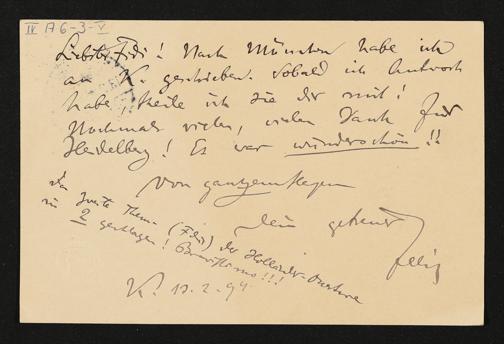 IV A6-3-V
Liebster Fidi! Nach München habe ich
an K. geschrieben. Sobald ich Antwort
habe, theile ich sie dir mit!
Nochmals vielen, vielen Dank für
Heidelberg! Es war wunderschön!!
Von ganzem Herzen
dein getreuer
Felix
Das zweite Thema (F dur) der Holländer-Ouverture
in 2 geschlagen! Bravissimo!!!
K. 2.94